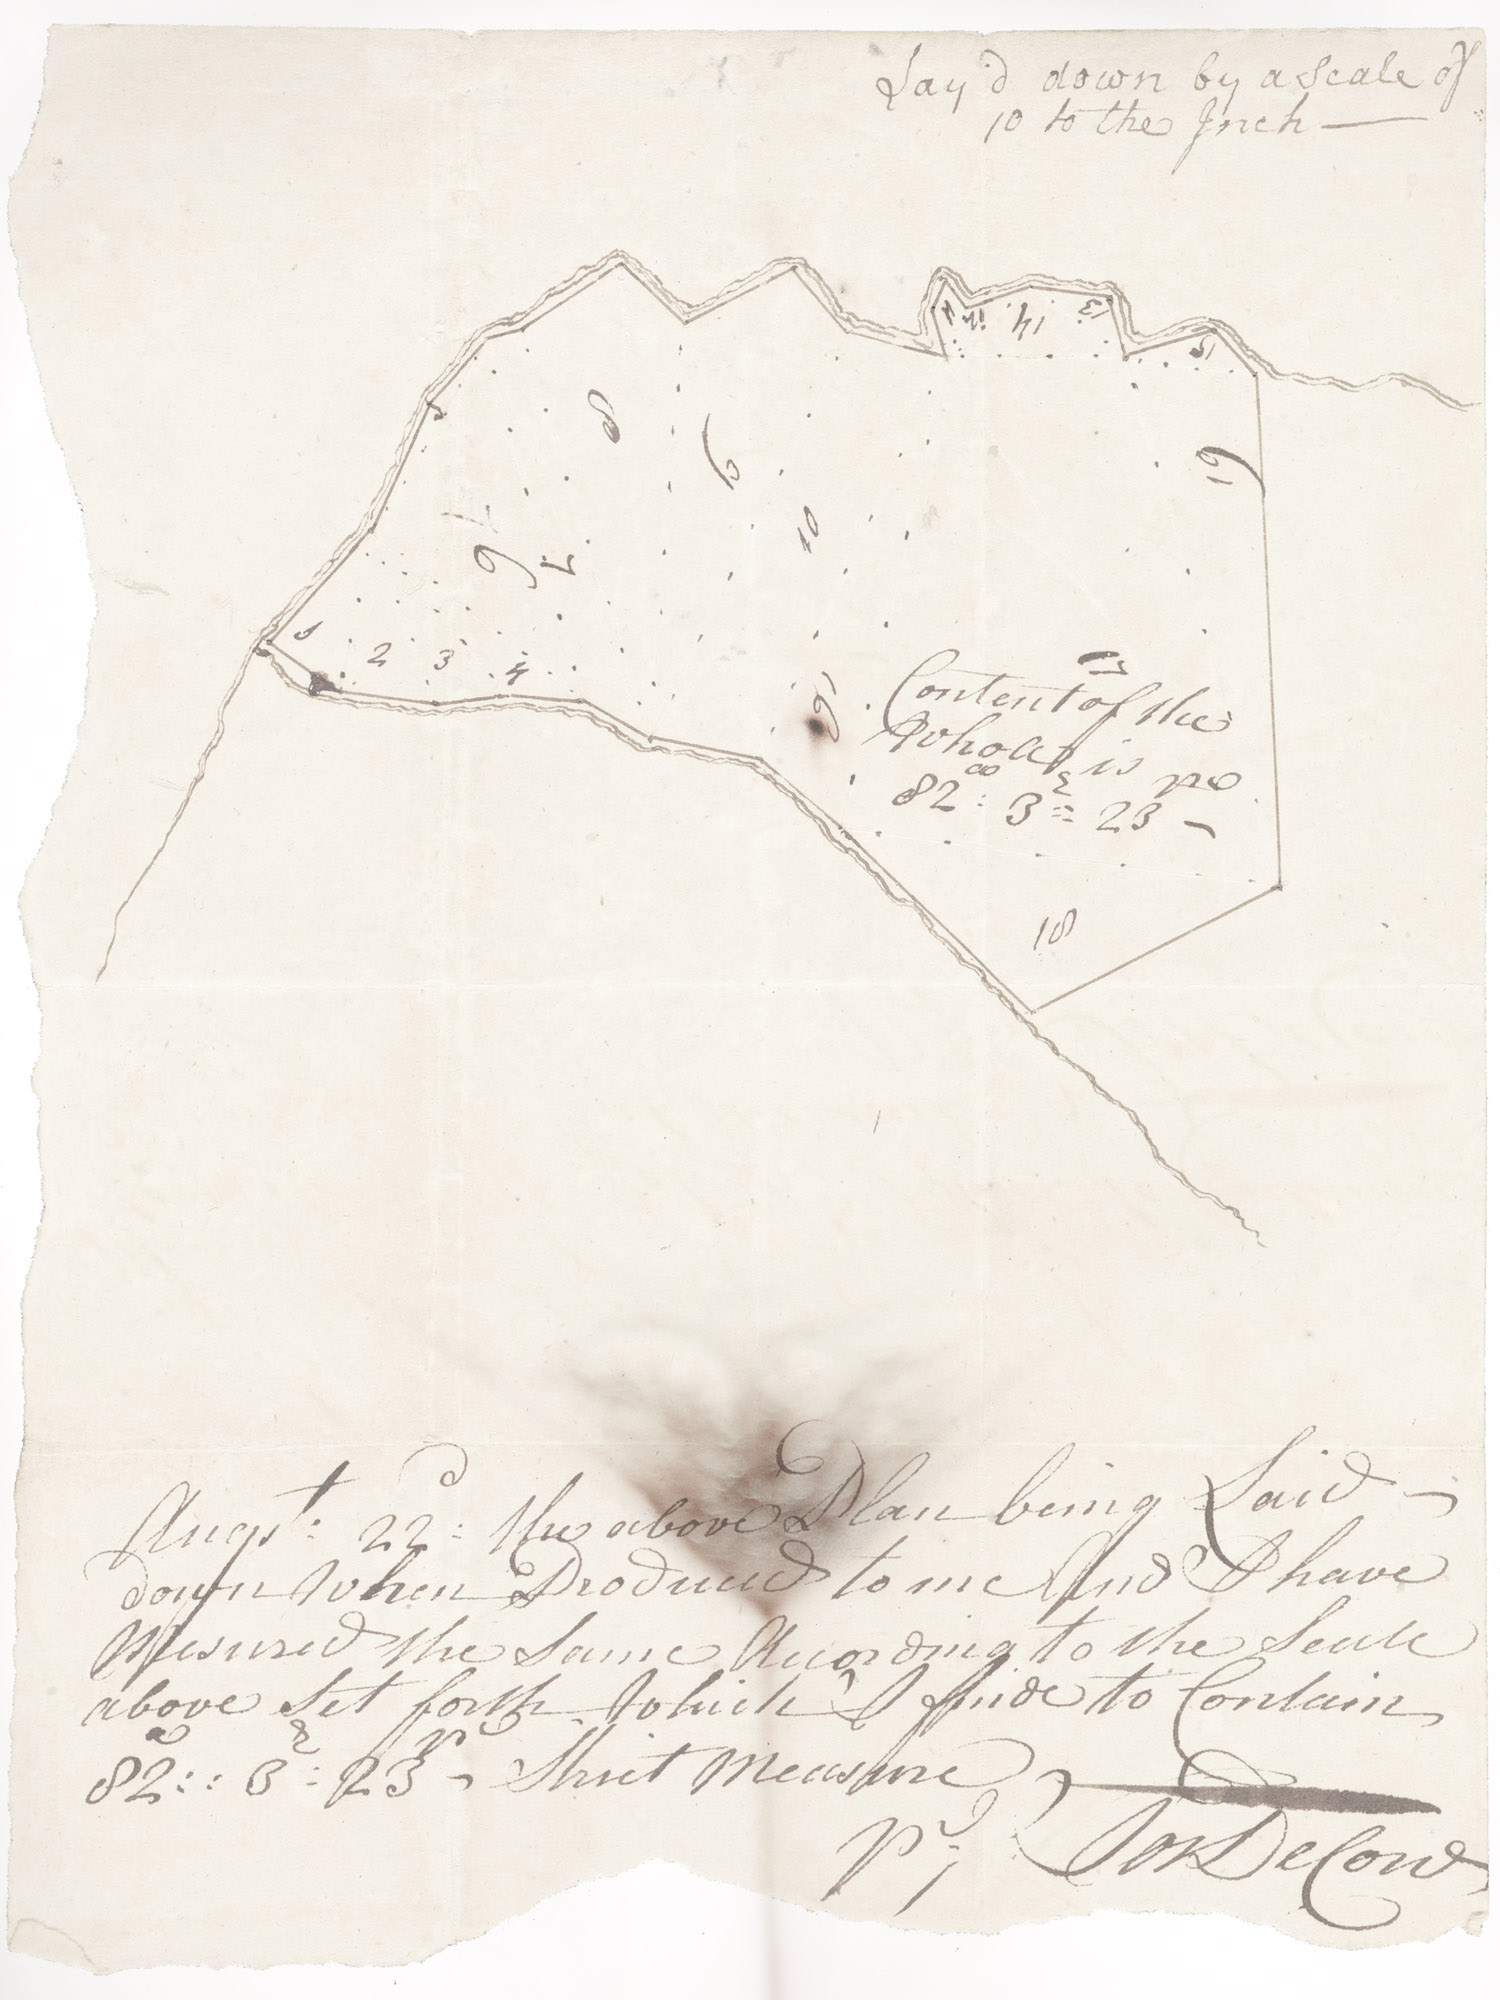 Lay'd down by a Scale of
10 to the Inch —
15
14
13
19
8
9
7
6
10
1
2
3
4
16
17
Content of the
Whole is
82 : 3 = 23 –
18
Augst: 22d: the above Plan being Laid –
down When Produced to me And I have
Mesured the Same Acording to the Scale
above Set forth Which I finde to Contain
82a :: 3r : 23p – Strict Measure
pr; Jos DeCow